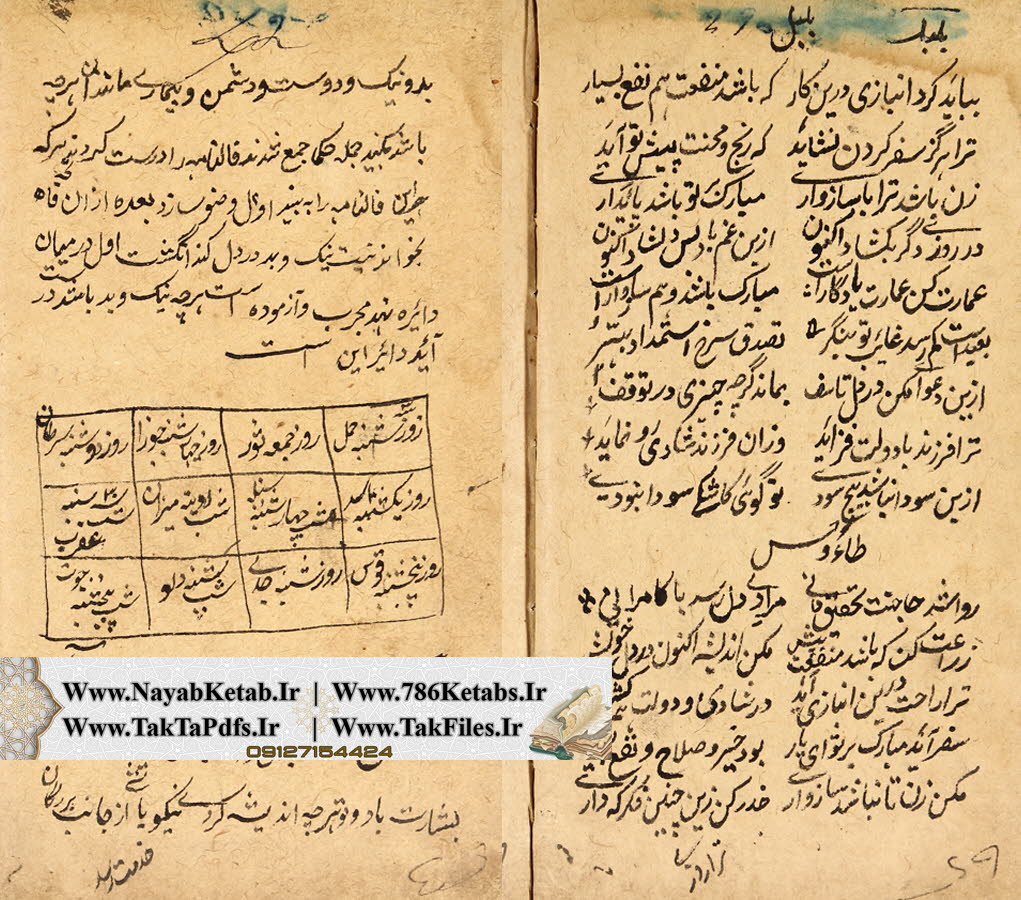 بلبل
بیاید کرد انبازی درین کار که باشد منفعت هم نفع بسیار
ترا هرگز سفر کردن نشاید که رنج و محنت پیش تو آید
زن باشد ترا با سازواری مبارک تو باشد پائداری
در روزی دگر بکشاد اکنون ازین غم باد پس دلشاد اکنون
عمارت کن عمارت یادگار است مبارک باشد و هم سازوار است
بعید است کم رسد غائب تو بنگر تصدق سرخ استمداد بهتر
ازین دعوا مکن در دل تاسف بماند گرچه چیزی در توقف
ترا فرزند با دولت فزاید وزان فرزند شادی رو نماید
ازین سودا نباشد هیچ سودی تو گوئی کاشکی سودا نبودی
طاءوس
روا شد حاجتت تحقیق دانی مراد دل رسد با کامرانی
زراعت کن که باشد منفعت بیش مکن اندیشه اکنون در دل خویش
ترا راحت درین انبازی آید در شادی و دولت
سفر آید مبارک بر تو ای یار بود خیر و صلاح و نفع
مکن زن تا نباشد سازواری حذر کن زین چنین فکر که داری
بد و نیک و دوست و دشمن و بیماری ماندن هرچه
باشد بکنید جمله حکما جمع شدند فالنامه را درست کردند هرکه
این فالنامه را به بیند اول وضو سازد بعده ازان فاتحه
بخواند نیت نیک و بد در دل کند انگشت اول درمیان
دائره نهد مجرب و آزموده است هرچه نیک و بد باشد در
آید دائر این است
روز شنبه حمل روز جمعه ثور روز چهارشنبه جوزا روز دوشنبه سرطان
روز یکشنبه اسد شب چهارشنبه سنبله شب آدینه میزان شب سه شنبه عقرب
روز پنجشنبه قوس روز شنبه جدی شب یکشنبه دلو شب پنجشنبه حوت
Www.NayabKetab.Ir | Www.786Ketabs.Ir
Www.TakTaPdfs.Ir | Www.TakFiles.Ir
09127154424
بشارت باد و تو هرچه اندیشه کردی نیکو یا از جانب بزرگان
خدمت رسد